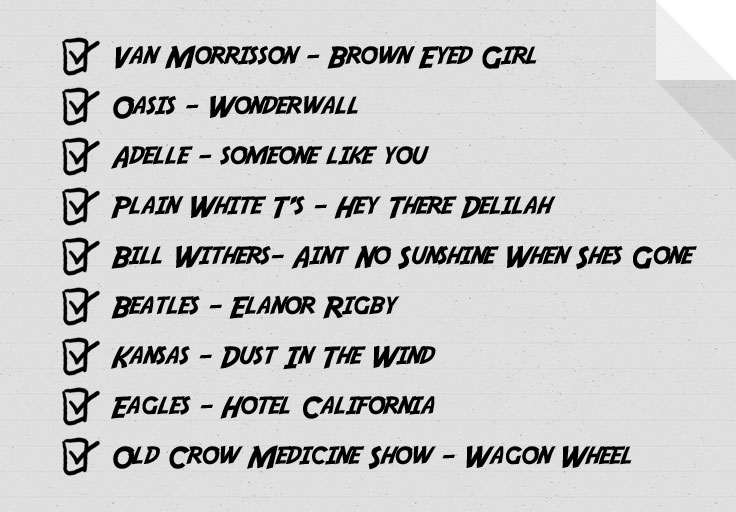 Van Morrisson - Brown Eyed Girl
Oasis - Wonderwall
Adelle - someone like you
Plain White T's - Hey There Delilah
Bill Withers- Aint No Sunshine When Shes Gone
Beatles - Elanor Rigby
Kansas - Dust In The Wind
Eagles - Hotel California
Old Crow Medicine Show - Wagon Wheel